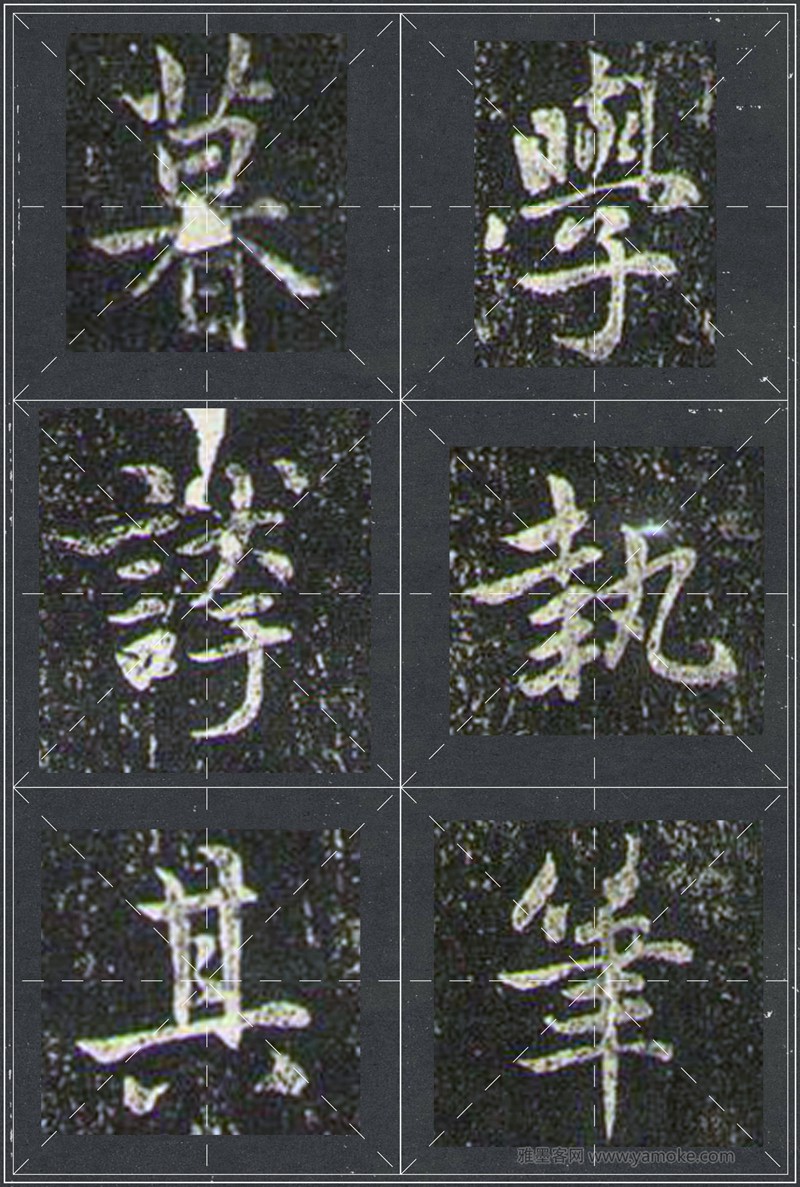 暮學
執
其筆
雅墨客网 www.yamoke.com